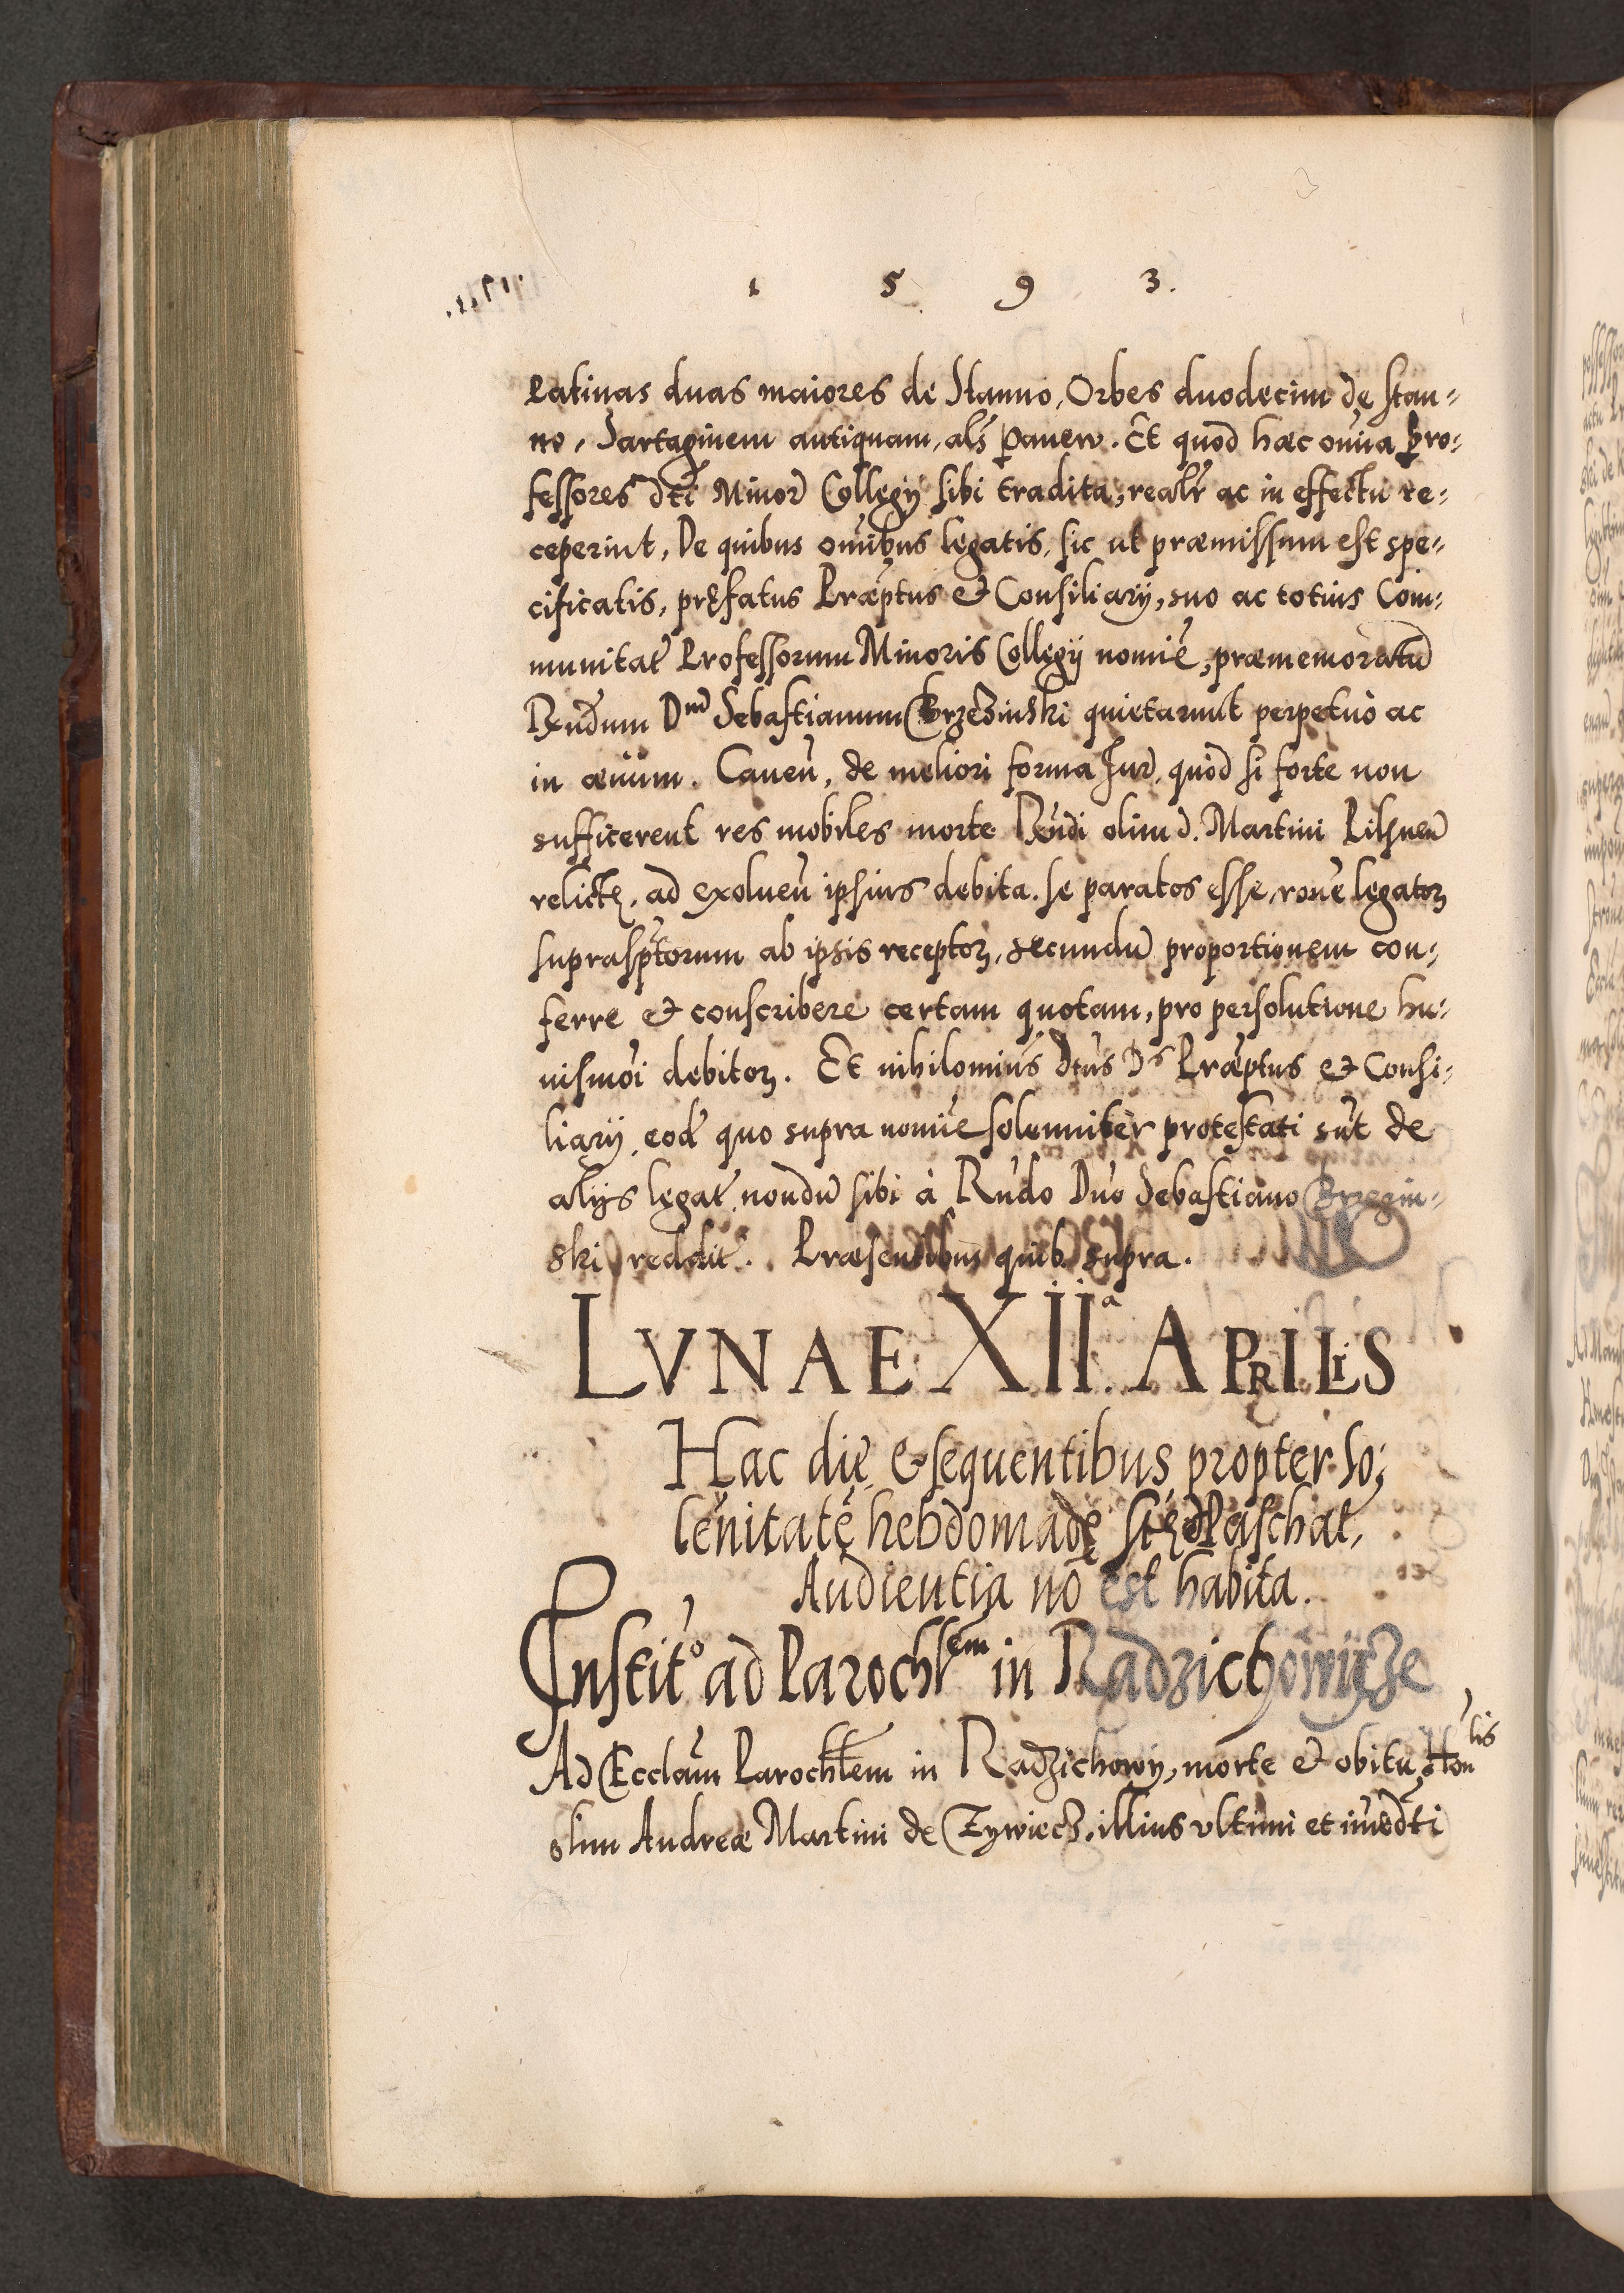 1 5 9 3.
Patinas duas maiores de Stanno, Orbes duodecim de stan-
no, Sartaginem antiquam, als̃ panew. Et quod hæc om̃ia Pro-
fessores dc̃ti Minor̃ Collegij sibi tradita, realr̃ ac in effectu re-
ceperint, De quibus om̃ibus legatis, sic ut præmissum est spe-
cificatis, pręfatus Præp̃tus & Consiliarij, suo ac totius Com-
munitat̃ Professorum Minoris Collegij nomiẽ, præmemoratũ
Rṽdum Dnũ Sebastianum Brzezinski quietarunt perpetuò ac
in æuum. Caueñ, de meliori forma Jur̃, quòd si forte non
sufficerent res mobiles morte Rṽdi olim d. Martini Pilsneñ
relictę, ad exolueñ ipsius debita. se paratos esse, roñe legatoꝝ
supraspt̃orum ab ipsis receptoꝝ, secundũ proportionem con-
ferre & conscribere certam quotam, pro persolutione hu-
iusmõi debitoꝝ. Et nihilomiñus dtũs Ds Præp̃tus & Consi-
liarij, eod̃ quo supra nomiẽ solenniter protestati sũt de
alijs legat̃, nondũ sibi à Rñdo Dño Sebastiano Brzezin-
ski reddit̃. Præsentibus quib. supra.
LVNAE XIIa. APRILIS
Hac die & sequentibus propter so-
lẽnitatẽ hebdomadę Stę Paschal,
Audientia nõ est habita.
Instit̃o ad Parochl̃em in Radzichowijcze
Ad Eccl̃am Parochl̃em in Radzichowy, morte & obitu, Honlis
olim Andreæ Martini de Zywiecz, illius vltimi et im̃edti